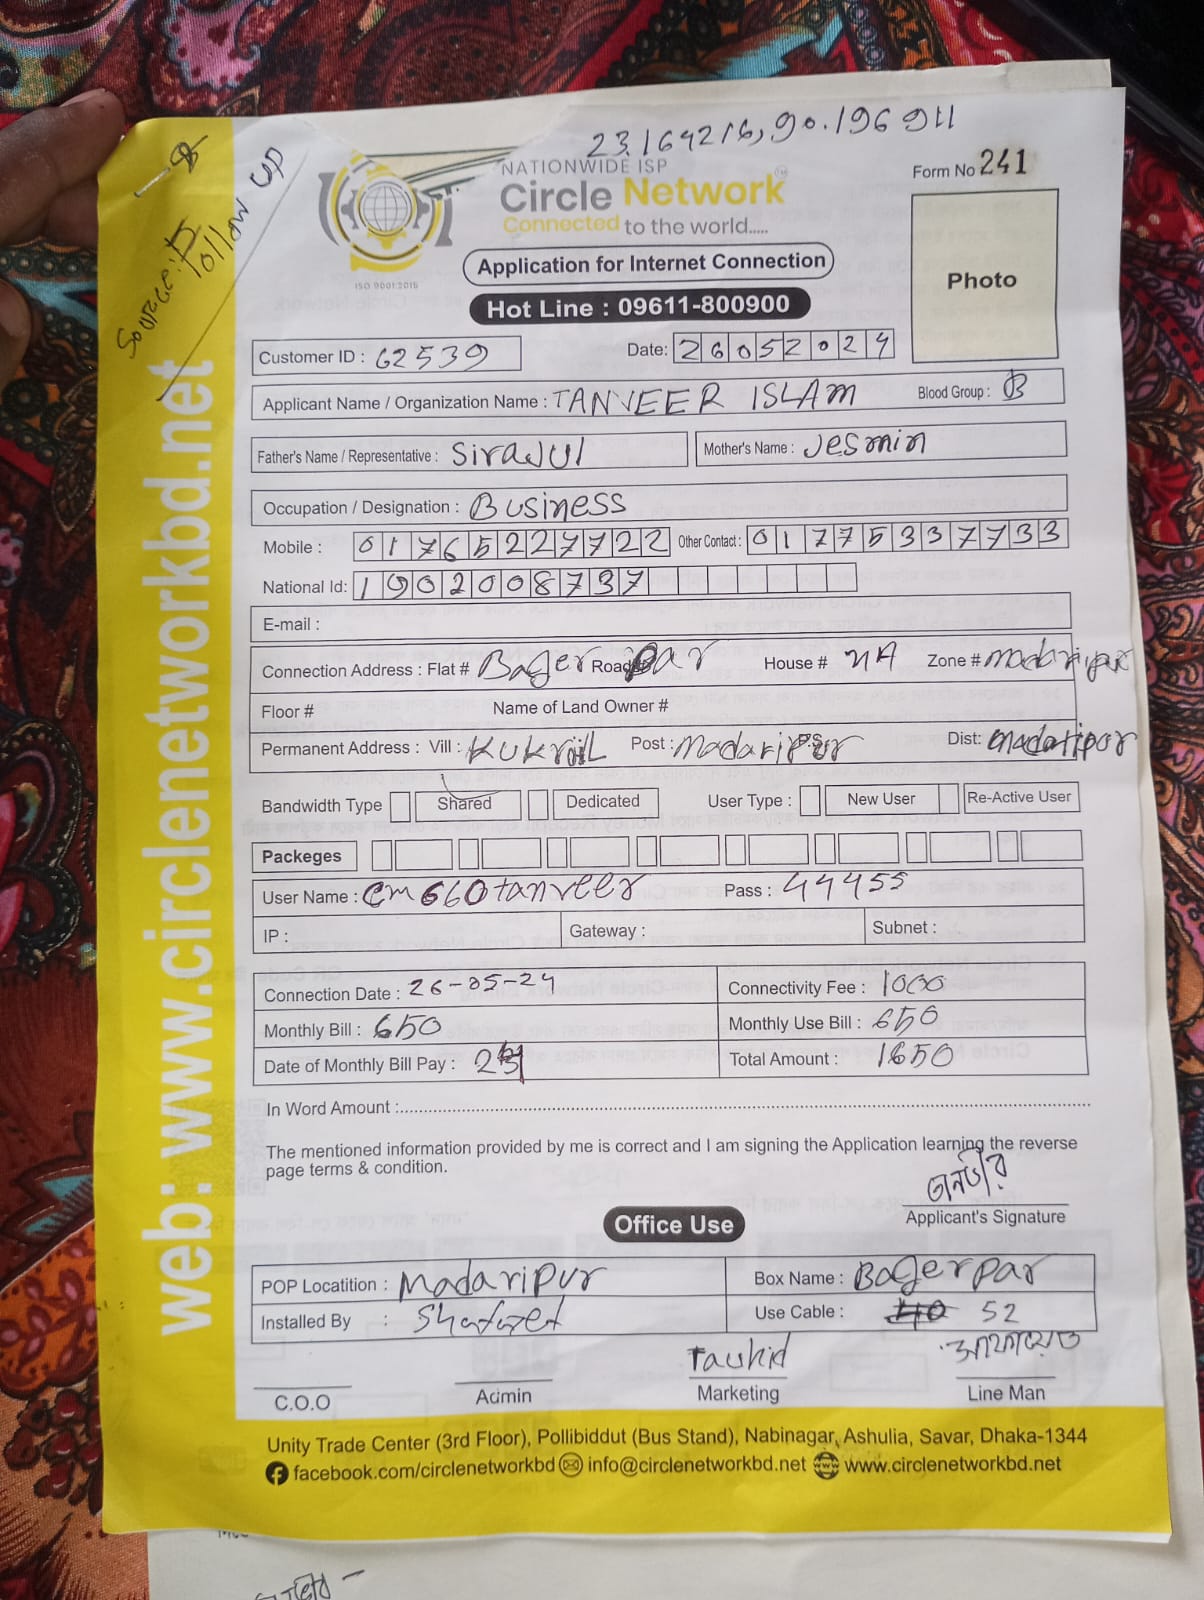 23.164216, 90.196911
NATIONWIDE ISP
Circle Network
Connected to the world.....
ISO 9001:2015
Form No 241
Photo
Application for Internet Connection
Hot Line : 09611-800900
follow up
web: www.circlenetworkbd.net
Customer ID : 62539
Date: 26052024
Applicant Name / Organization Name : TANVEER ISLAM Blood Group : B
Father's Name / Representative : Sirajul Mother's Name : Jesmin
Occupation / Designation : Business
Mobile : 01765227722 Other Contact : 01775337733
National Id: 1902008737
E-mail :
Connection Address : Flat # Bager Road# par House # NA Zone # madaripur
Floor # Name of Land Owner #
Permanent Address : Vill : Kukrail Post : Madaripur P.S: Dist: madaripur
Bandwidth Type Shared Dedicated User Type : New User Re-Active User
Packeges
User Name : cm660tanveer Pass : 44455
IP : Gateway : Subnet :
Connection Date : 26-05-24 Connectivity Fee : 1000
Monthly Bill : 650 Monthly Use Bill : 650
Date of Monthly Bill Pay : Total Amount : 1650
In Word Amount :
The mentioned information provided by me is correct and I am signing the Application learning the reverse
page terms & condition.
তানভীর
Applicant's Signature
Office Use
POP Locatition : Madaripur Box Name : Bagerpar
Installed By : Shafayet Use Cable : 52
Taukid
C.O.O Admin Marketing Line Man
Unity Trade Center (3rd Floor), Pollibiddut (Bus Stand), Nabinagar, Ashulia, Savar, Dhaka-1344
facebook.com/circlenetworkbd info@circlenetworkbd.net www.circlenetworkbd.net